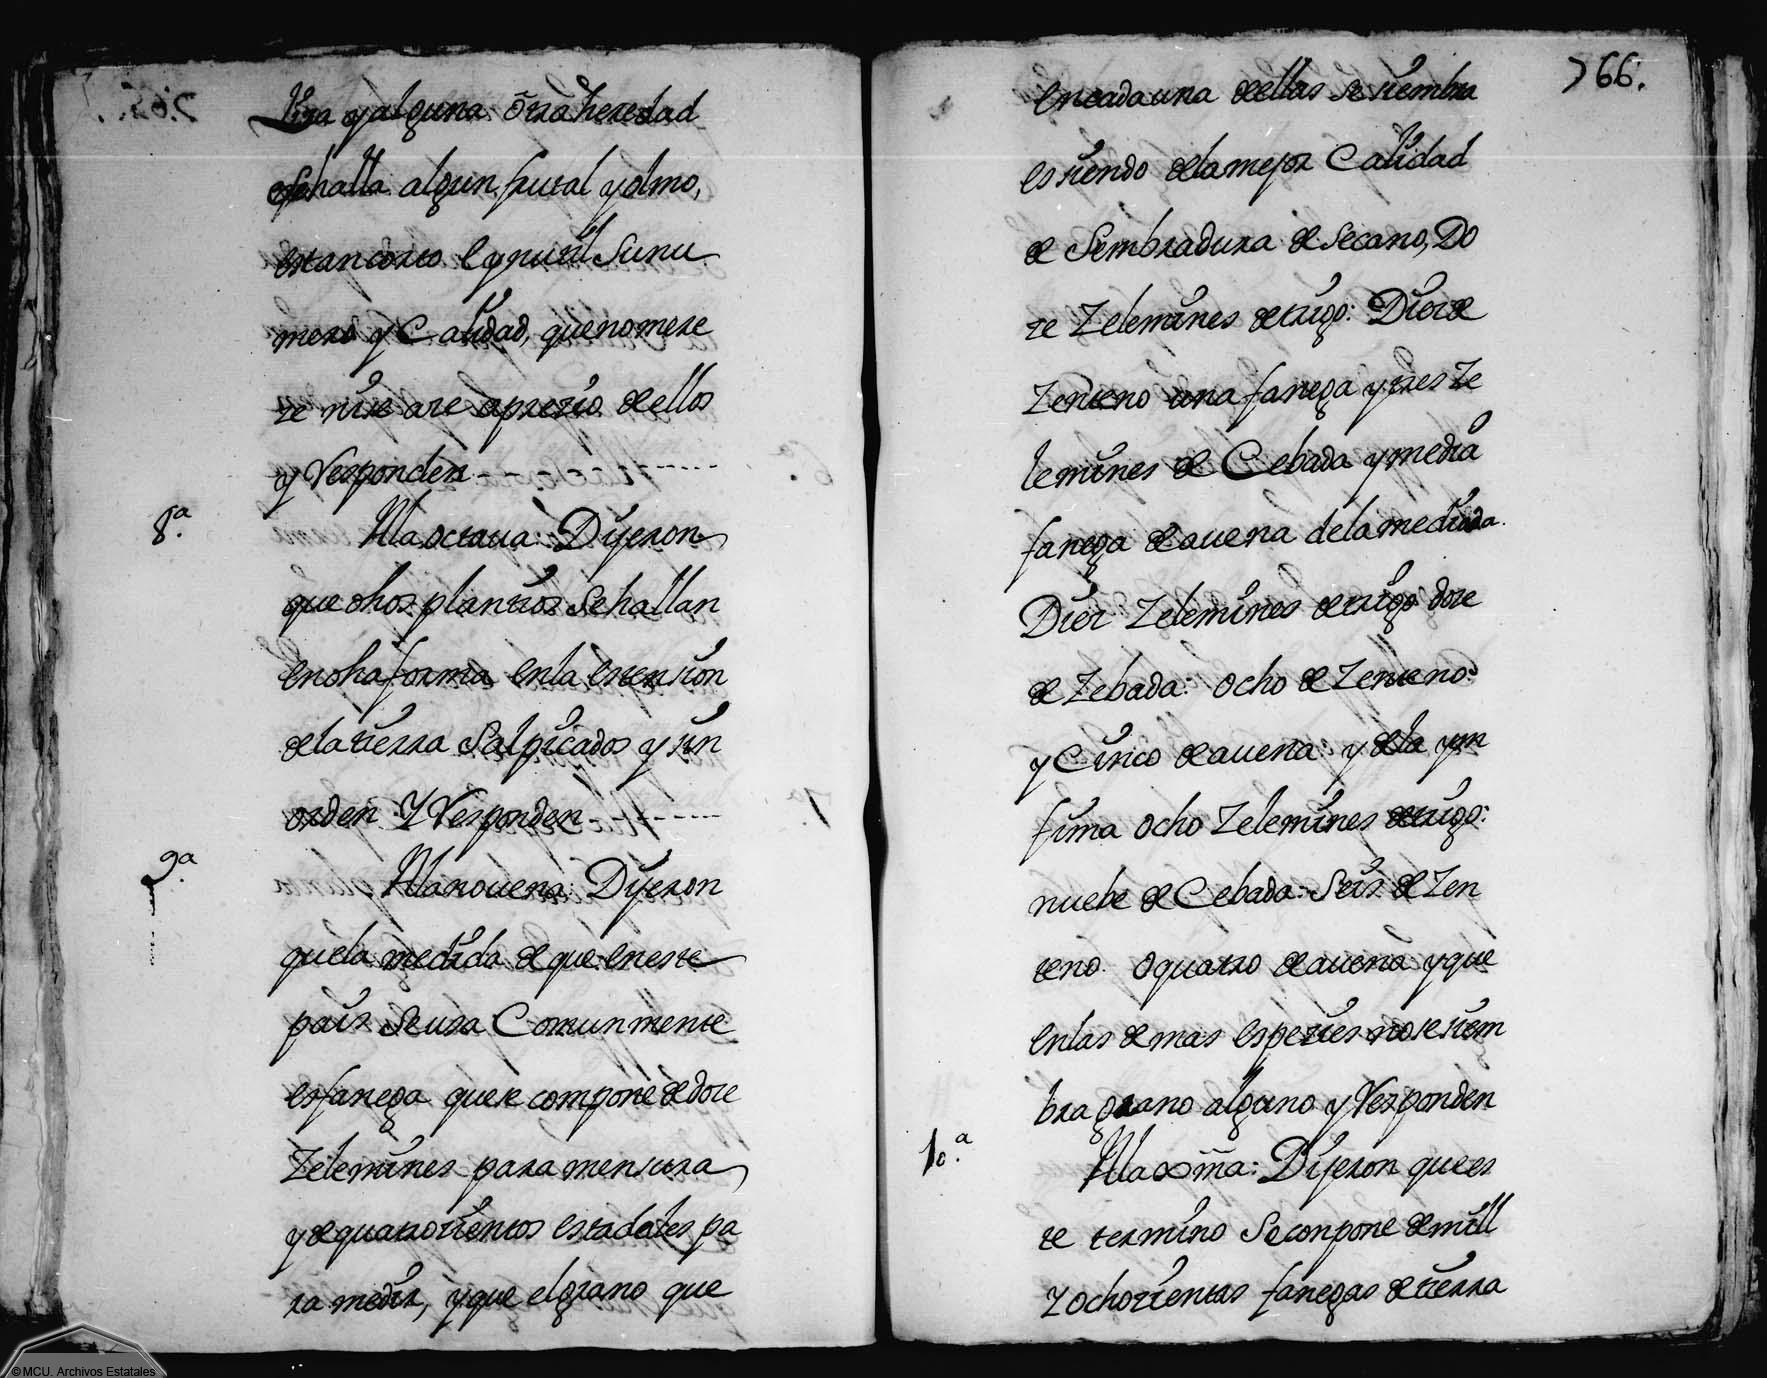 Vina y alguna õtra heredad
sehalla algun frutal y olmo,
es tan corto e ynutil Sunu
mero y Calidad, que no mere
ze ni se aze aprezio de ellos
y Responden
8.ª Alla octaua: Dijeron
que dhos plantios Sehallan
en dha forma en la estension
de la tierra Salpicados y sin
orden Y Responden
9.ª Alla nouena: Dijeron
que la medida de que en este
pais Se usa Comunmente
es fanega que se compone de doze
Zelemines para mensura
y de quatrozientos estadales pa
ra medir, y que el grano que
766.
en cada una de ellas se siembra
es siendo de la mejor Calidad
de Sembradura de Secano, Do
ze Zelemines de trigo: Diez de
Zenteno una fanega y tres Ze
lemines de Cebada y media
fanega de auena de la mediada
Diez Zelemines de trigo doze
de Zebada: ocho de Zenteno:
y Cinco de auena: y de la yn
fima ocho Zelemines de trigo:
nuebe de Cebada: Seis de Zen
teno. o quatro de auena y que
en las demas espezies no se siem
bra grano alguno y Responden
10.ª Alla dezma: Dijeron que es
te termino Se conpone de mill
y ochozientas fanegas de tierra
©MCU. Archivos Estatales